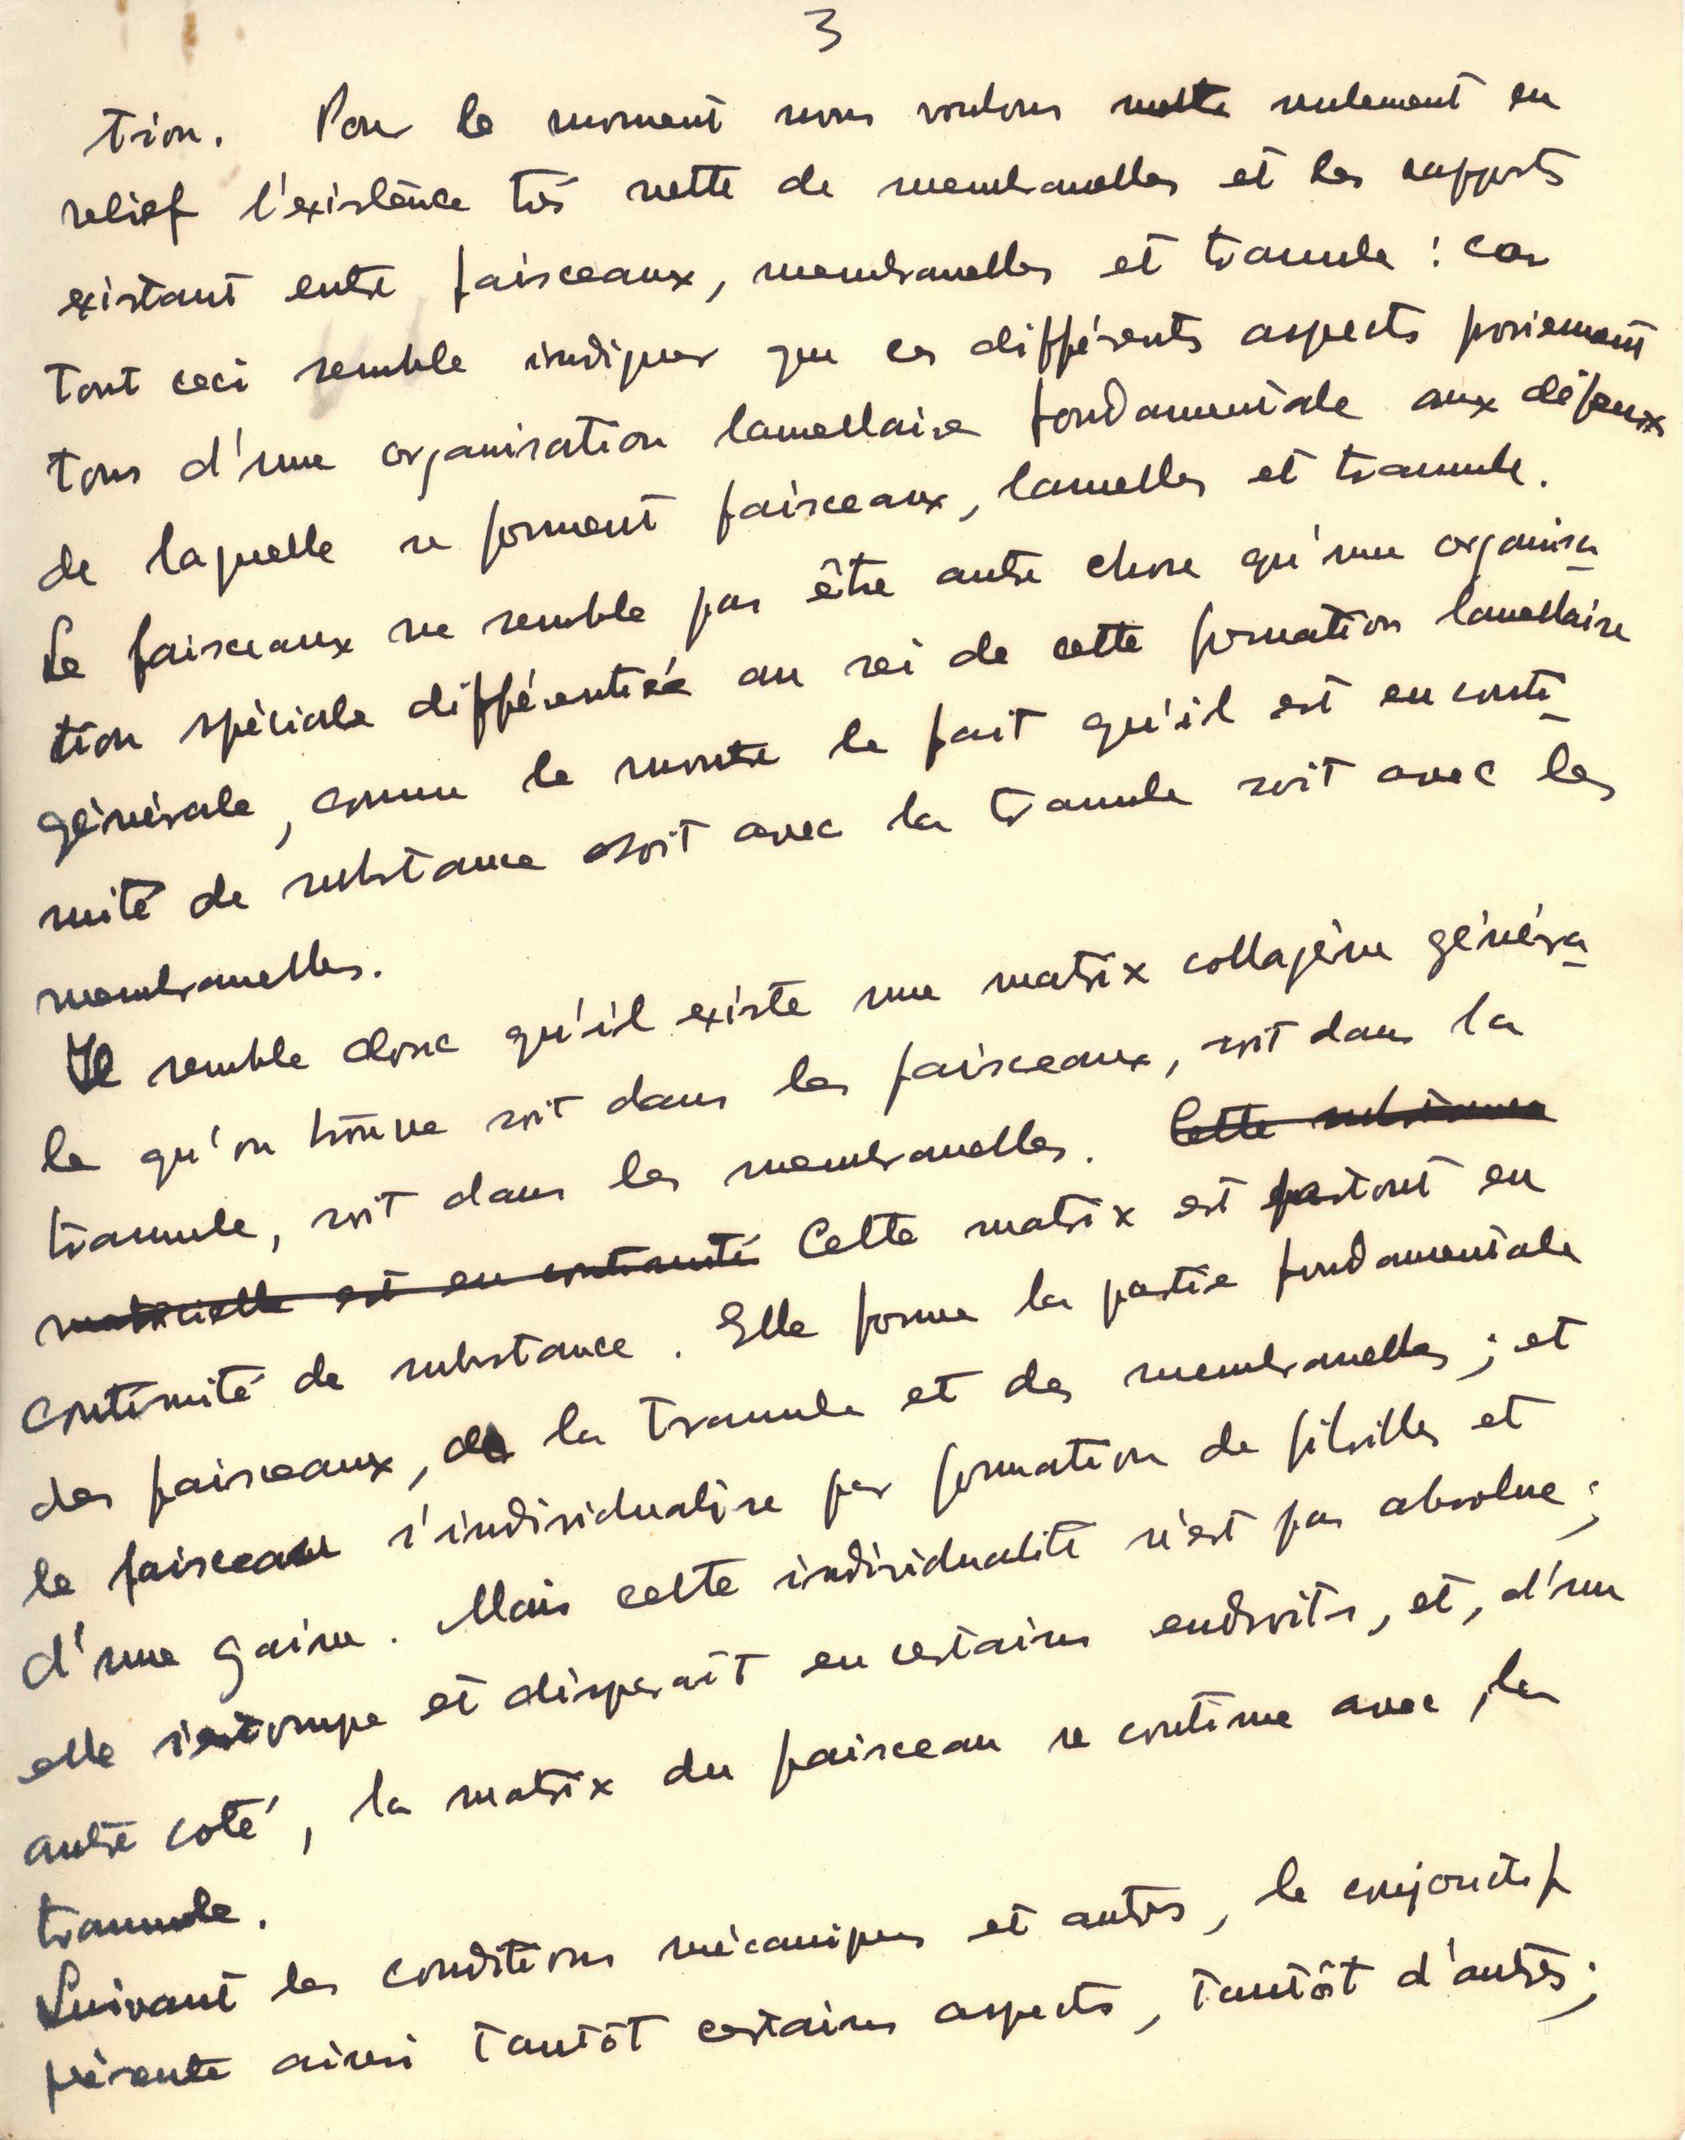 3
tion. Pour le moment nous voulons mettre seulement en
relief l'existence très nette de membranelles et les rapports
existant entre faisceaux, membranelles et trammule : car
tout ceci semble indiquer que ces différents aspects proviennent
tous d'une organisation lamellaire fondamentale aux dépens
de laquelle se forment faisceaux, lamelles et trammule.
Le faisceaux ne semble pas être autre chose qu'une organisa
tion spéciale différentiée au sei de cette formation lamellaire
générale, comme le montre le fait qu'il est en conti
nuité de substance soit avec la trammule soit avec les
membranelles.
Il semble donc qu'il existe une matrix collagène généra
le qu'on trouve soit dans les faisceaux, soit dans la
trammule, soit dans les membranelles. Cette substance
matricielle est en continuité Cette matrix est partout en
continuité de substance. Elle forme la partie fondamentale
des faisceaux, de la trammule et des membranelles ; et
le faisceau s'individualise par formation de fibrilles et
d'une gaine. Mais cette individualité n'est pas absolue ;
elle s'estompe et disparaît en certains endroits, et, d'un
autre coté, la matrix du faisceau se continue avec la
trammule.
Suivant les conditions mécaniques et autres, le conjonctif
présente ainsi tantôt certains aspects, tantôt d'autres ;